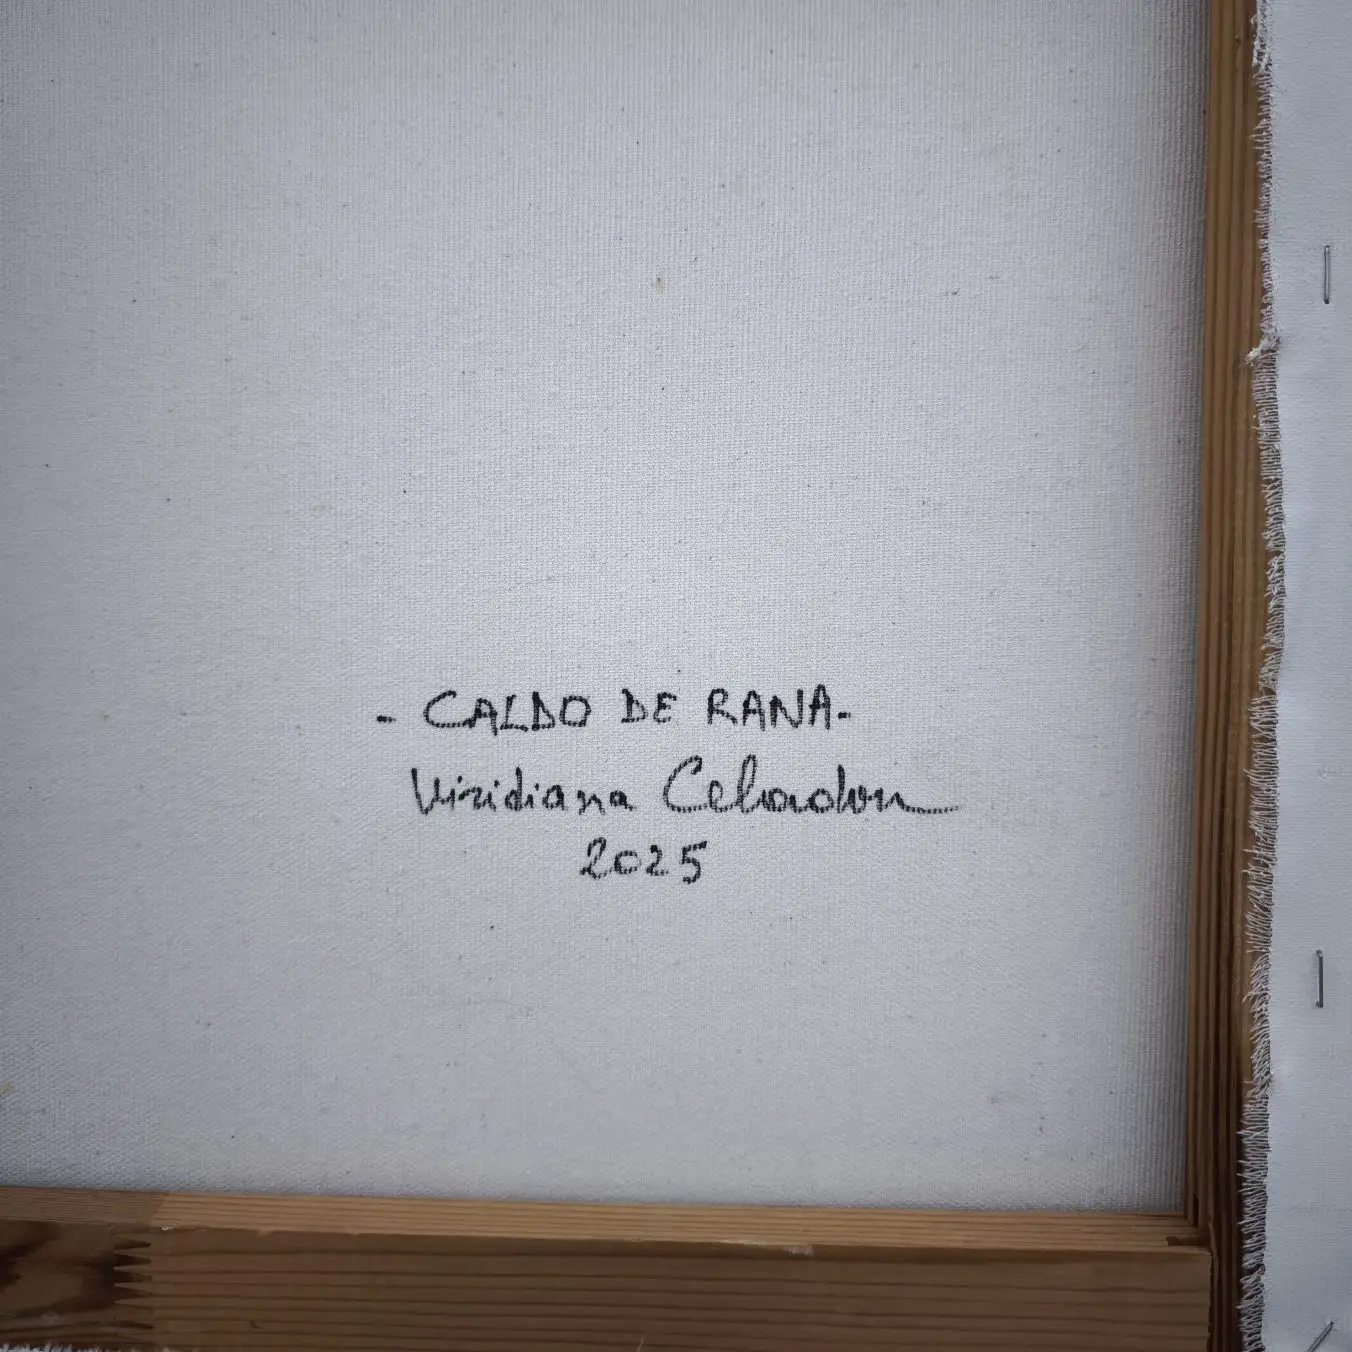 - CALDO DE RANA-
Viridiana
2025